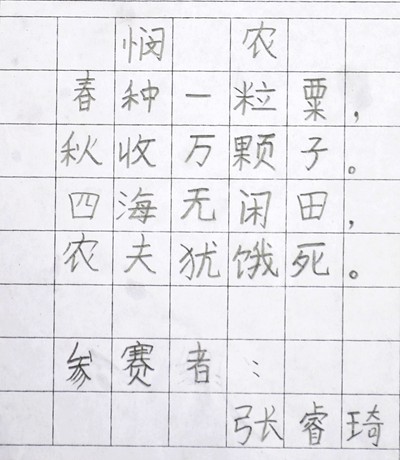 悯 农
春种一粒粟，
秋收万颗子。
四海无闲田，
农夫犹饿死。
参赛者：
张睿琦